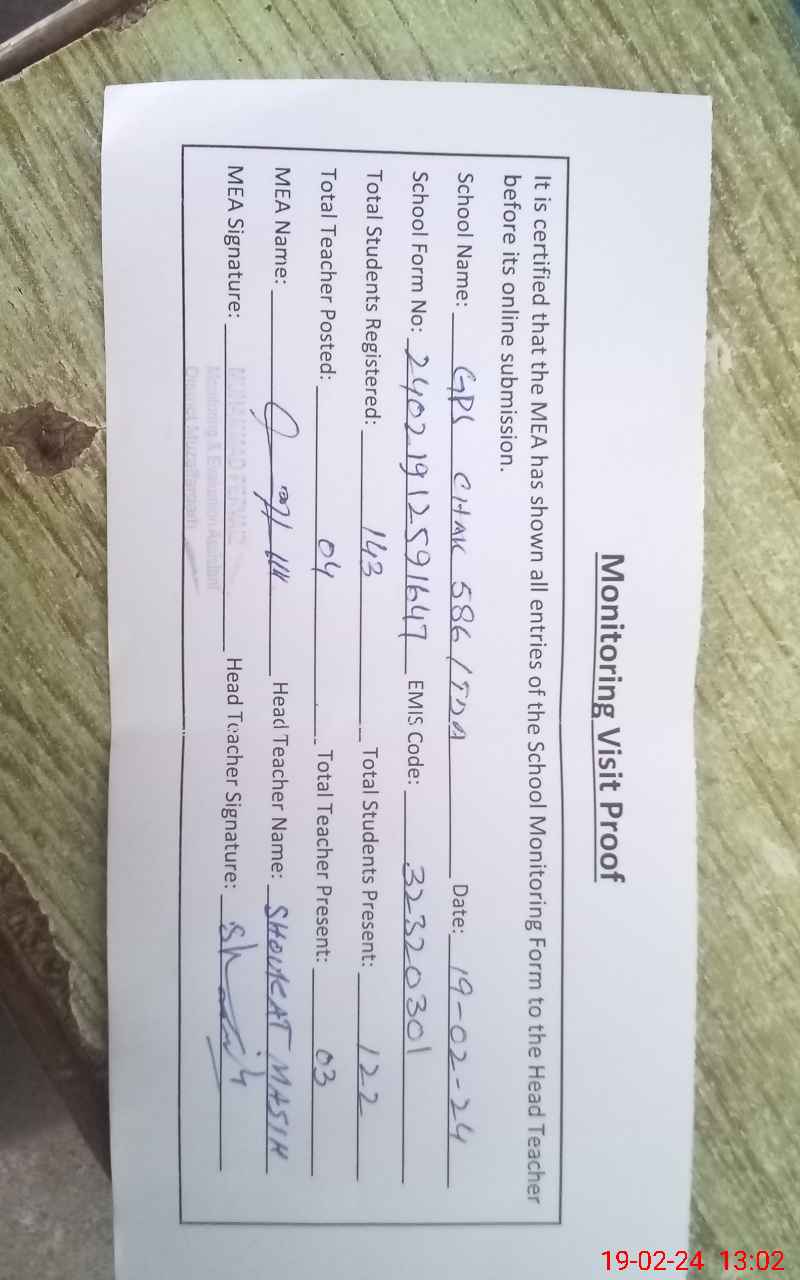 Monitoring Visit Proof
It is certified that the MEA has shown all entries of the School Monitoring Form to the Head Teacher
before its online submission.
School Name: GPS CHAK 586/TDA Date: 19-02-24
School Form No: 24021912591647 EMIS Code: 32320301
Total Students Registered: 143 Total Students Present: 122
Total Teacher Posted: 04 Total Teacher Present: 03
MEA Name: Head Teacher Name: SHOUKAT MASIH
MEA Signature: Head Teacher Signature:
MUHAMMAD
Monitoring & Evaluation Assistant
District Muzaffargarh
19-02-24 13:02